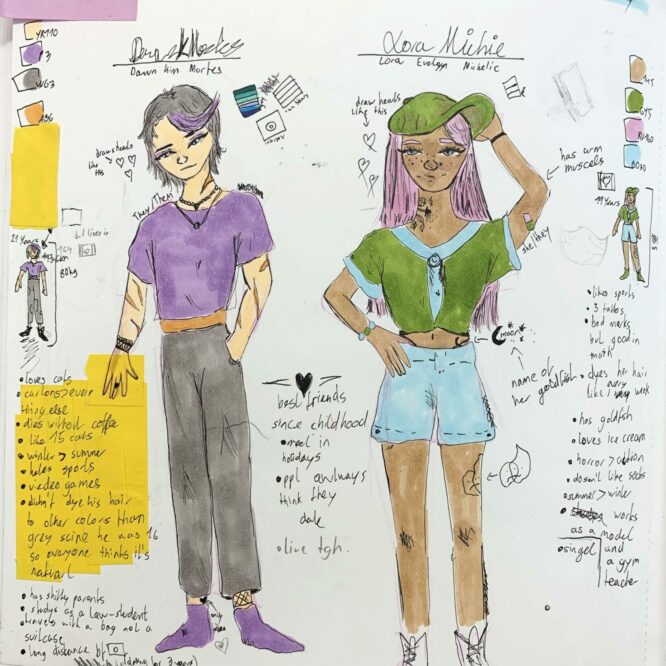 YR110
P3
WG3
Dawn Kim Mortes
draws heads
like
this
They/Them
but lives in
21 Years
80kg
•loves cats
cartoons>ever
thing else
•dies without coffee
• like 15 cats
• winter > summer
• hates sports
• viedeo games
•didn't dye his hair
to other colors than
grey scine he was 16
so everyone thinks it's
natral
• has shitty parents
• studys as a law-student
travels with a bag not a
suitcase
• long discance by
best friends
since childhood
•meet in
holidays
•ppl awlways
think they
date
•live tgh.
Lora Michie
Lora Evelyn Michelic
draw heads
like this
has arm
muscels
she/they
19 Years
moon
name of
her goldfish
•likes sports
• 3 tattos
• bad marks
but good in
math
•dyes her hair
like every week
• has goldfish
•loves ice cream
•horror>action
•doesn't like seeds
•summer>winter
• works
as a model
and
a gym
teacher
•singel